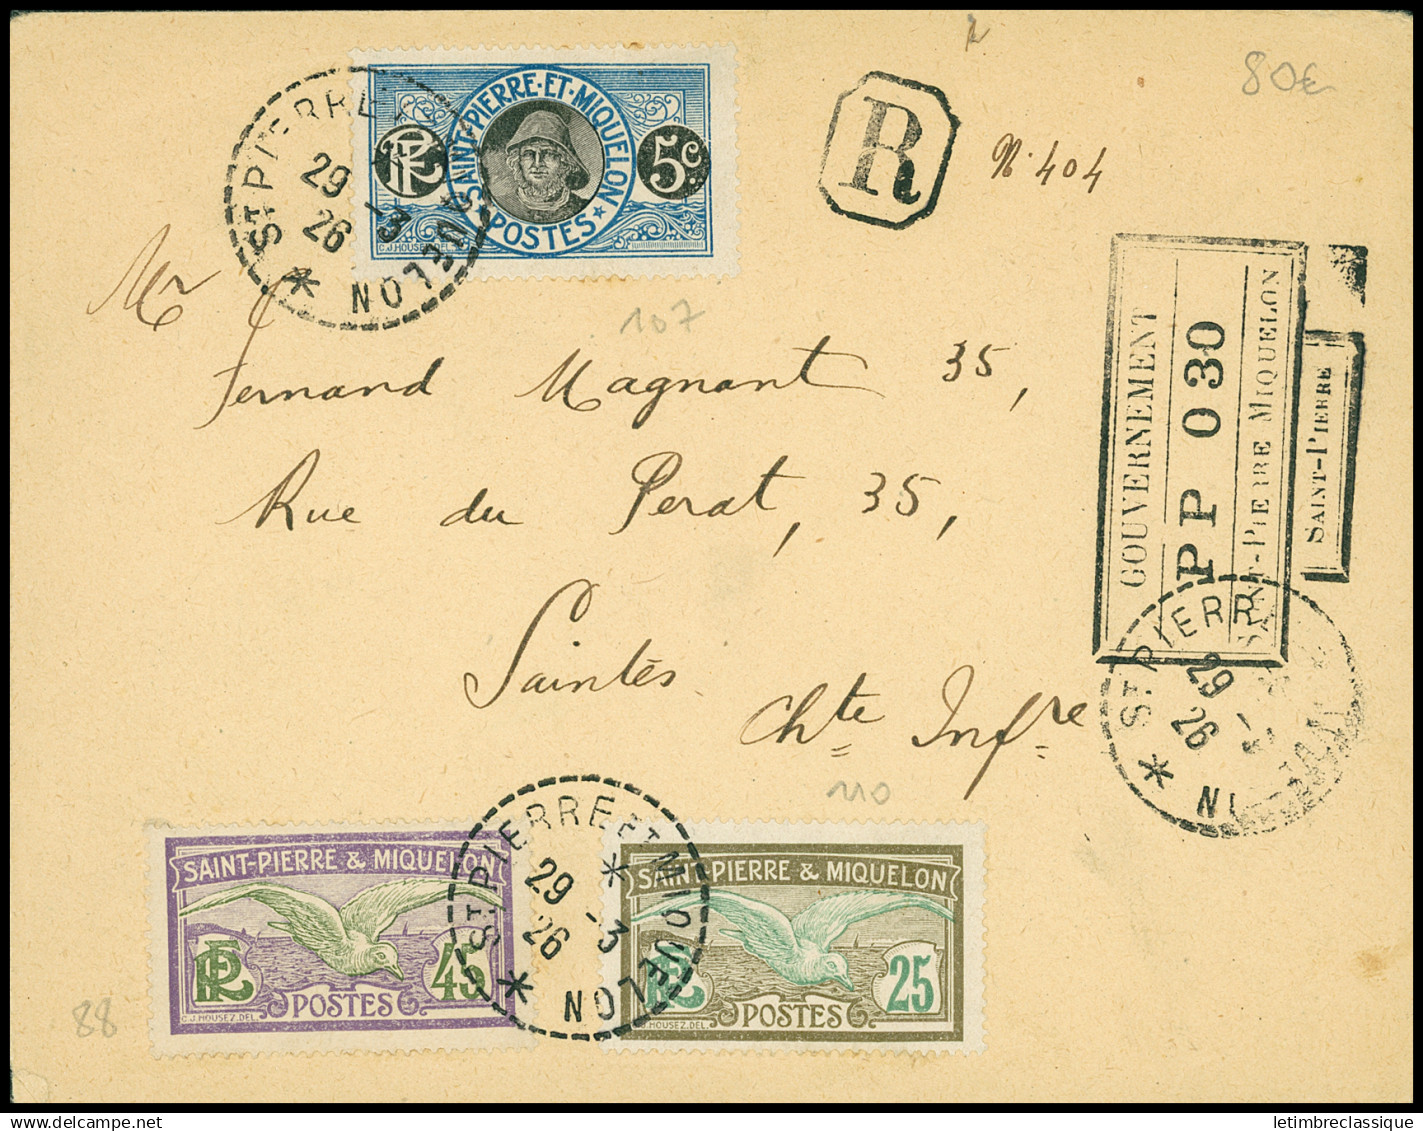 80€
SAINT-PIERRE-ET-MIQUELON
RF
5c.
POSTES
C.J. HOUSEZ. DEL.
ST. PIERRE
29 -3
26
ELON
R
N. 404
107
Mr
Fernand Magnant 35,
Rue du Perat, 35,
Saintes
Chte Infre
GOUVERNEMENT
PP 030
SAINT-PIERRE MIQUELON
SAINT-PIERRE
ST. PIERR
29 -
26
N
110
SAINT-PIERRE & MIQUELON
RF
45
POSTES
C.J. HOUSEZ. DEL.
88
ST. PIERRE ET MIQUELON
29 -3
26
SAINT-PIERRE & MIQUELON
RF
25
POSTES
C.J. HOUSEZ. DEL.
delcampe.net
letimbreclassique